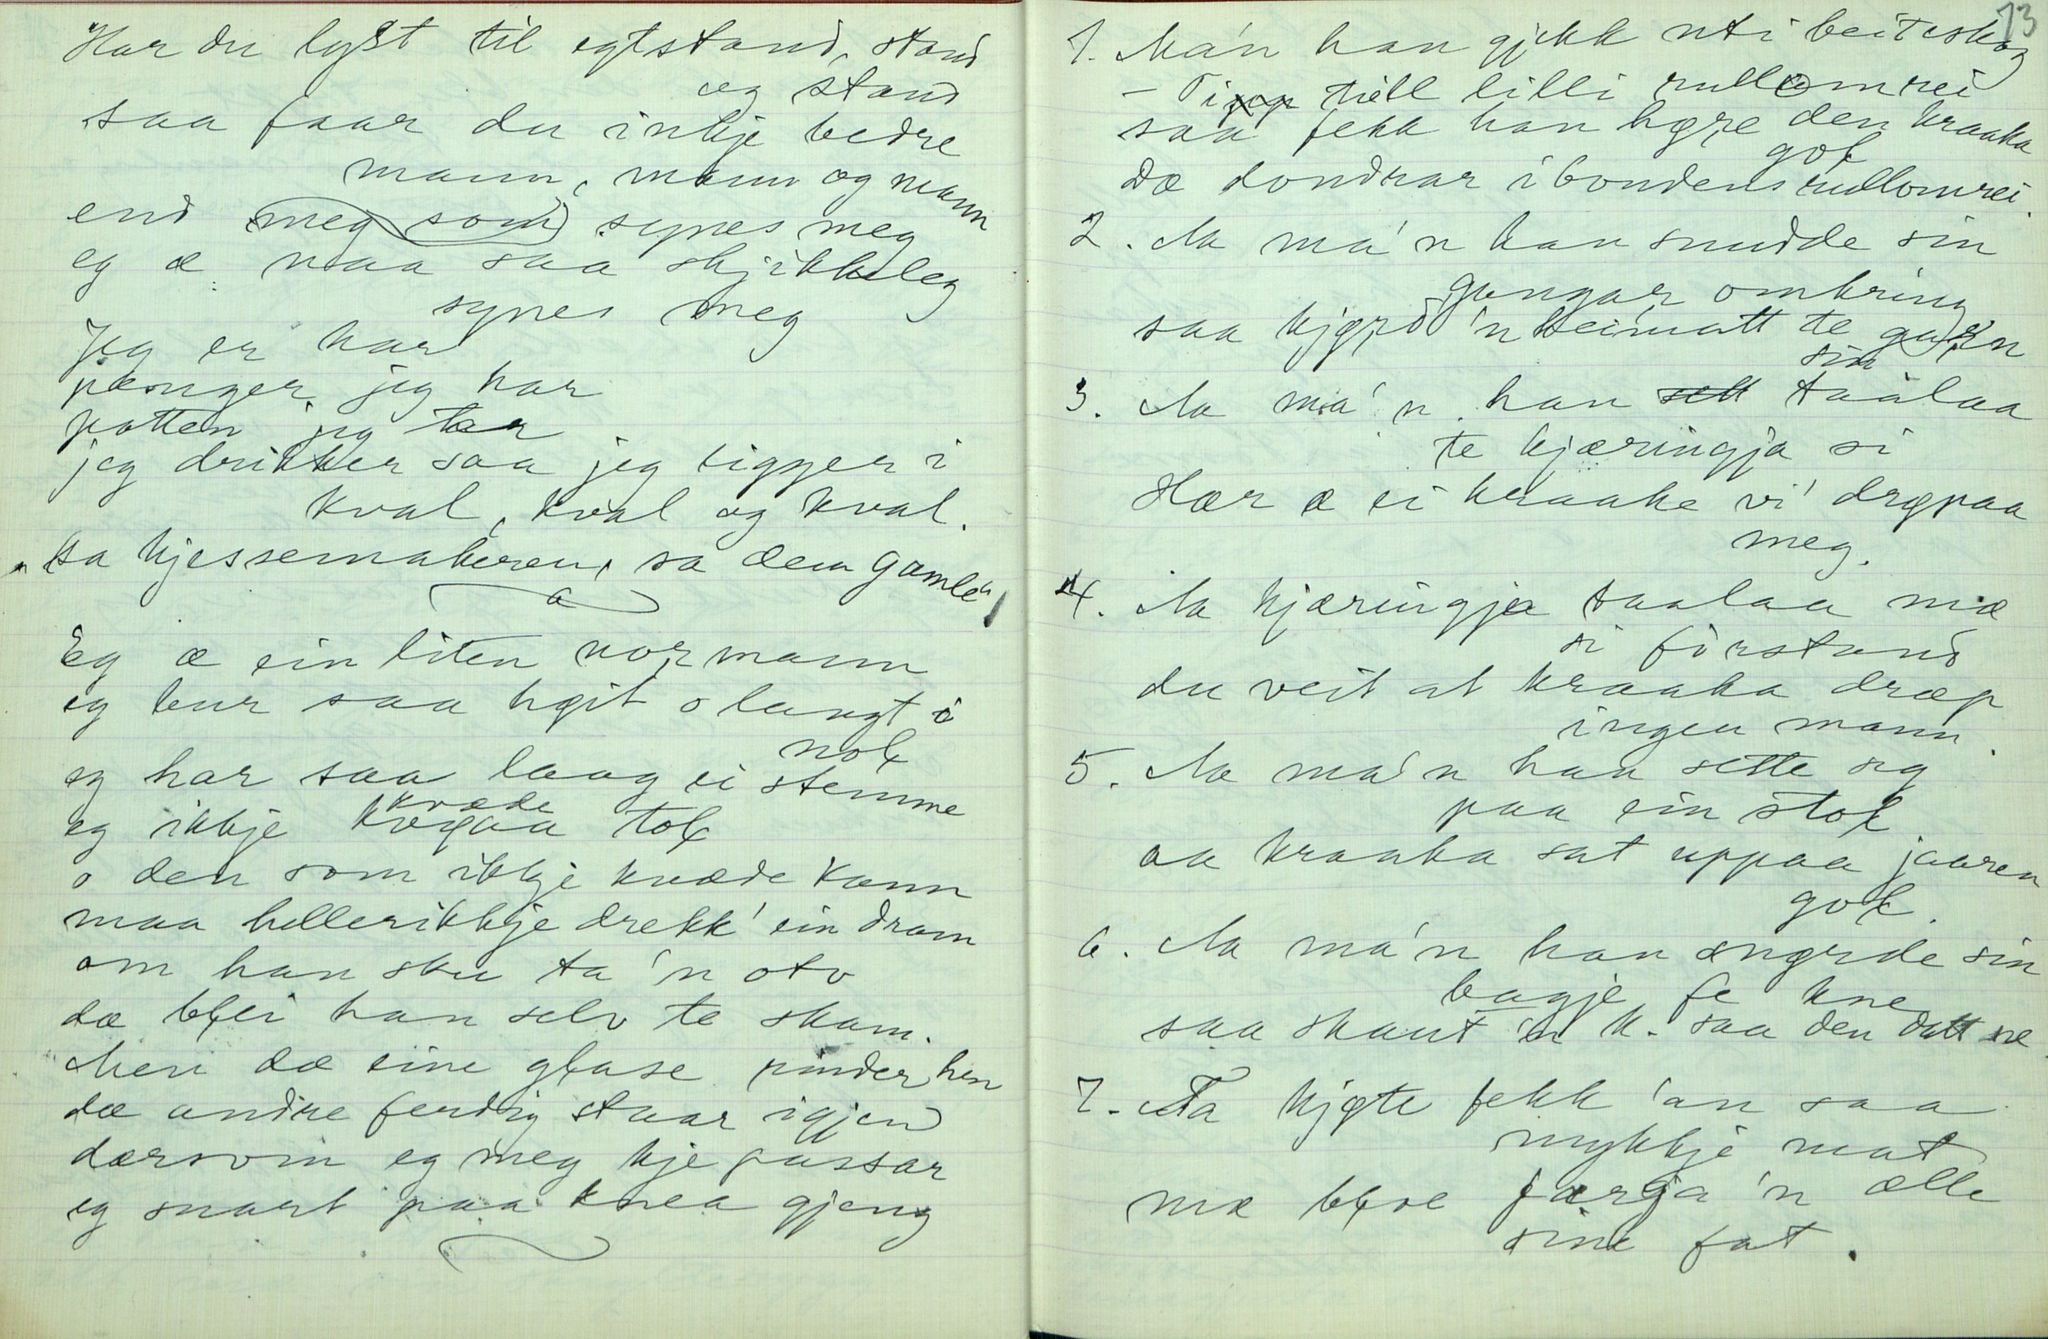 Har du lyst til egtstand, stand
og stand
saa faar du inkje bedre
mann, mann og mann
end meg som synes meg
eg æ naa saa skjikkeleg
synes meg
Jeg er har
pænger jeg har
potten jeg tar
jeg drikker saa jeg ligger i
kval, kval og kval.
sa kjessemakeren, sa dem gamle"
Eg æ ein liten normann
eg bur saa høit o langt i
nol
eg har saa laag ei stemme
kvæde
eg ikkje kvøaa tol
o den som ikkje kvæde kann
maa heller ikkje drekk' ein dram
om han sku ta 'n oto
da blei han selv te skam.
Men dæ eine glase pinder hen
dæ andre ferdig staar igjen
dærsom eg meg kje passar
eg snart paa knea gjeng
73
1. Ma'n han gjekk uti beiteskog
– Ti till lilli rullomrei
saa fekk han høre den kraaka
gol
Dæ dondrar i bondens rullomrei.
2. Aa ma'n han snudde sin
gangar omkring
saa kjørd 'n heimatt te garn
sin
3. Aa ma'n han taalaa
te kjæringja si
Hær æ ei kraake vi' drøpaa
meg.
4. Aa kjæringja taalaa mæ
si forstand
du veit at kraaka dræp
ingen mann.
5. Aa ma'n han sette sig
paa ein stol
aa kraaka sat uppaa jaaren
gol.
6. Aa ma'n han spende sin
bogje fe kne
saa skaut 'n k. saa den datt ne.
7. Ta kjøte fekk 'an saa
mykkje mat
mæ bloe farga 'n ælle
sine fat.